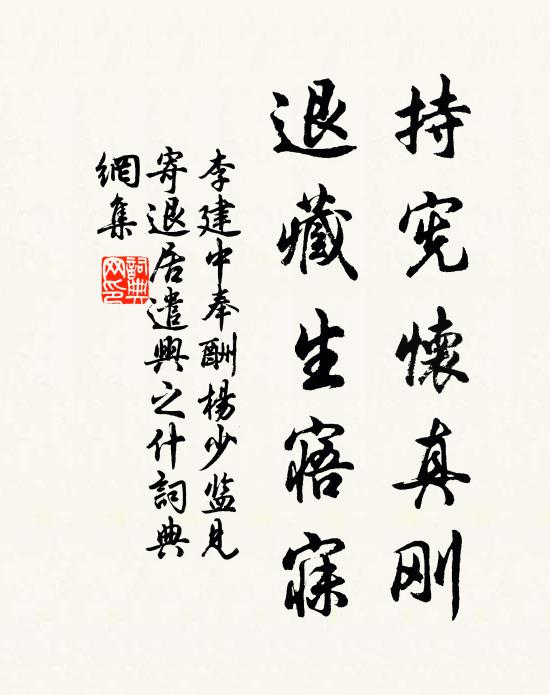 持宪懷真刚
退藏生寤寐
李建中奉酬楊少监见
寄退居遣興之什詞典
網集
詞典网印